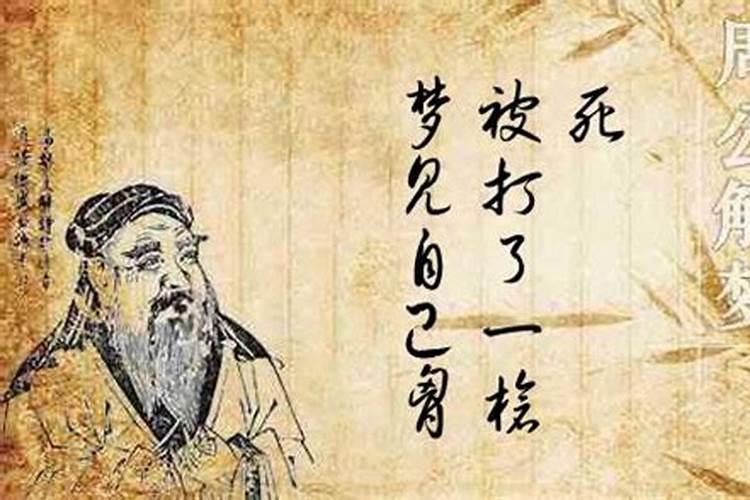 梦见自己胷
被打了一槍
死
周公解梦